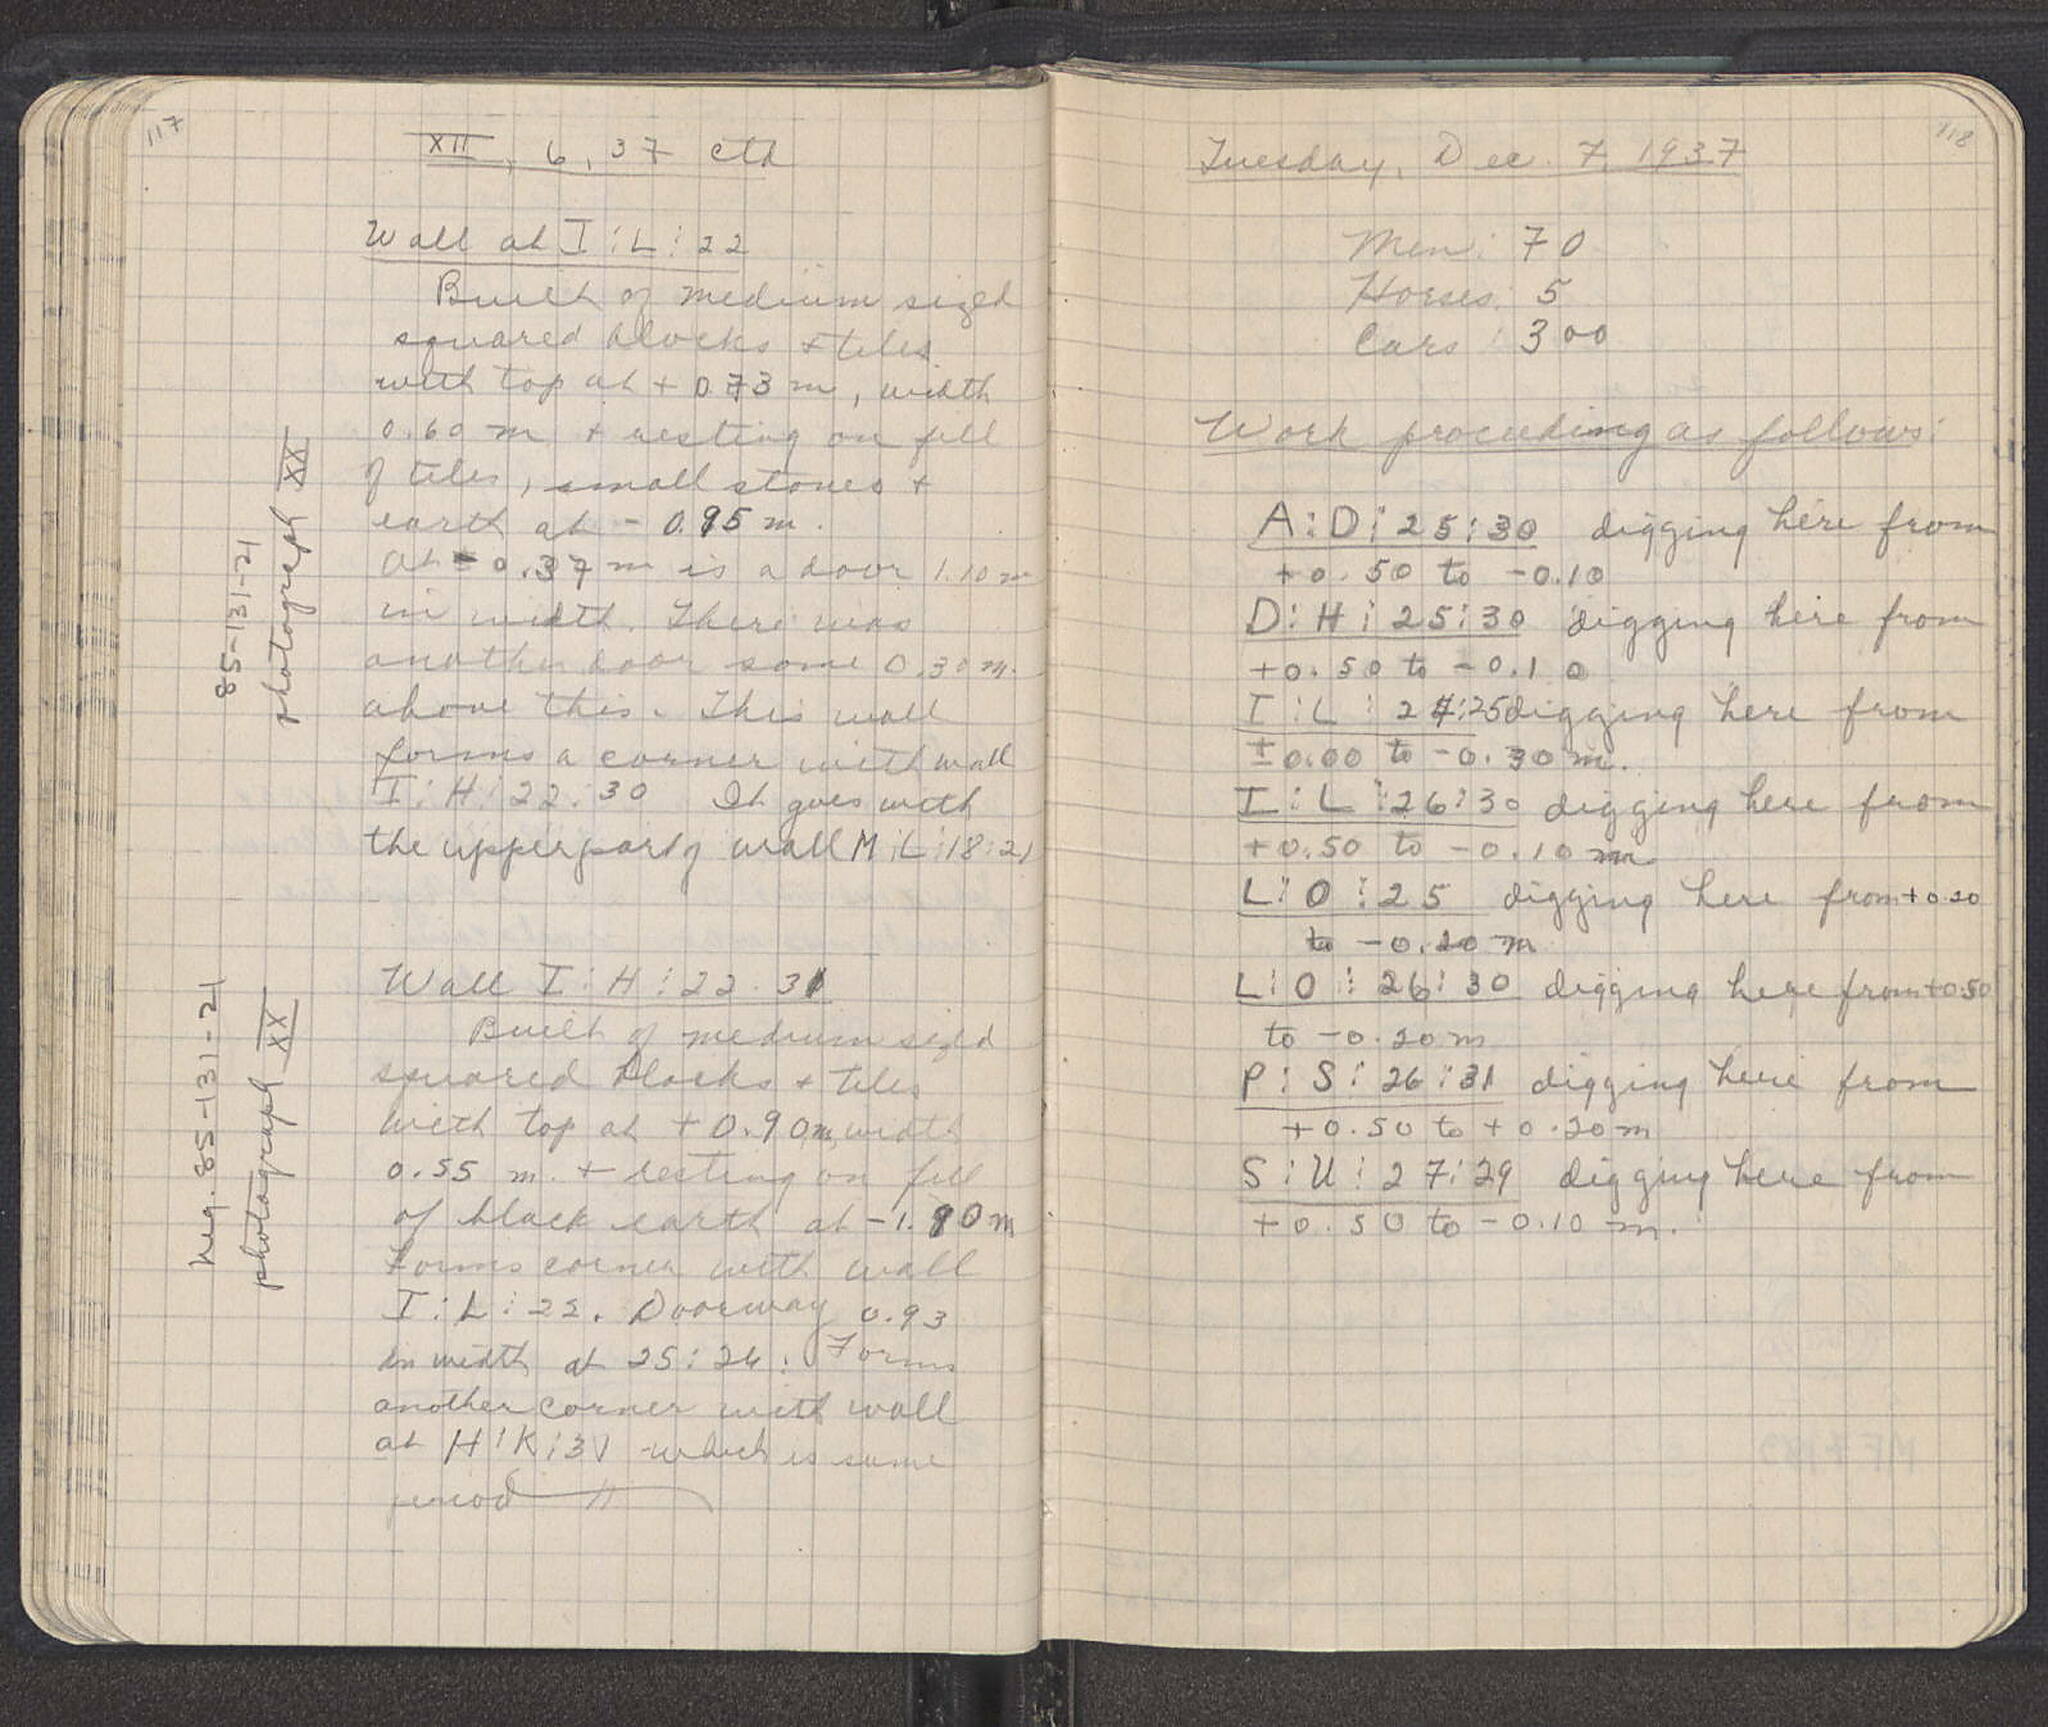 117
XII, 6, 37 ctd
Wall at I:L:22
Built of medium sized
squared blocks + tiles
with top at + 0.73 m, width
0.60 m + resting on fill
of tiles, small stones +
earth at - 0.95 m.
At -0.37 m is a door 1.10 m
in width. There was
another door some 0.30 m.
above this. This wall
forms a corner with wall
I:H:22:30 It goes with
the upper part of wall M:L:18:21
85-131-21
photograph XX
Wall I:H:22.31
Built of medium sized
squared blocks + tiles
with top at +0.90m, width
0.55 m. + resting on fill
of black earth at -1.90m
Forms corner with wall
I:L:22. Doorway 0.93
in width at 25:26. Forms
another corner with wall
at H:K:31 which is same
period
neg. 85-131-21
photograph XX
118
Tuesday, Dec. 7, 1937
Men: 70
Horses: 5
Cars: 300
Work proceeding as follows:
A:D:25:30 digging here from
+0.50 to -0.10
D:H:25:30 digging here from
+0.50 to -0.10
I:L:24:25 digging here from
±0.00 to -0.30 m.
I:L:26:30 digging here from
+0.50 to -0.10 m
L:O:25 digging here from +0.20
to -0.20 m
L:O:26:30 digging here from +0.50
to -0.20 m
P:S:26:31 digging here from
+0.50 to +0.20 m
S:U:27:29 digging here from
+0.50 to -0.10 m.